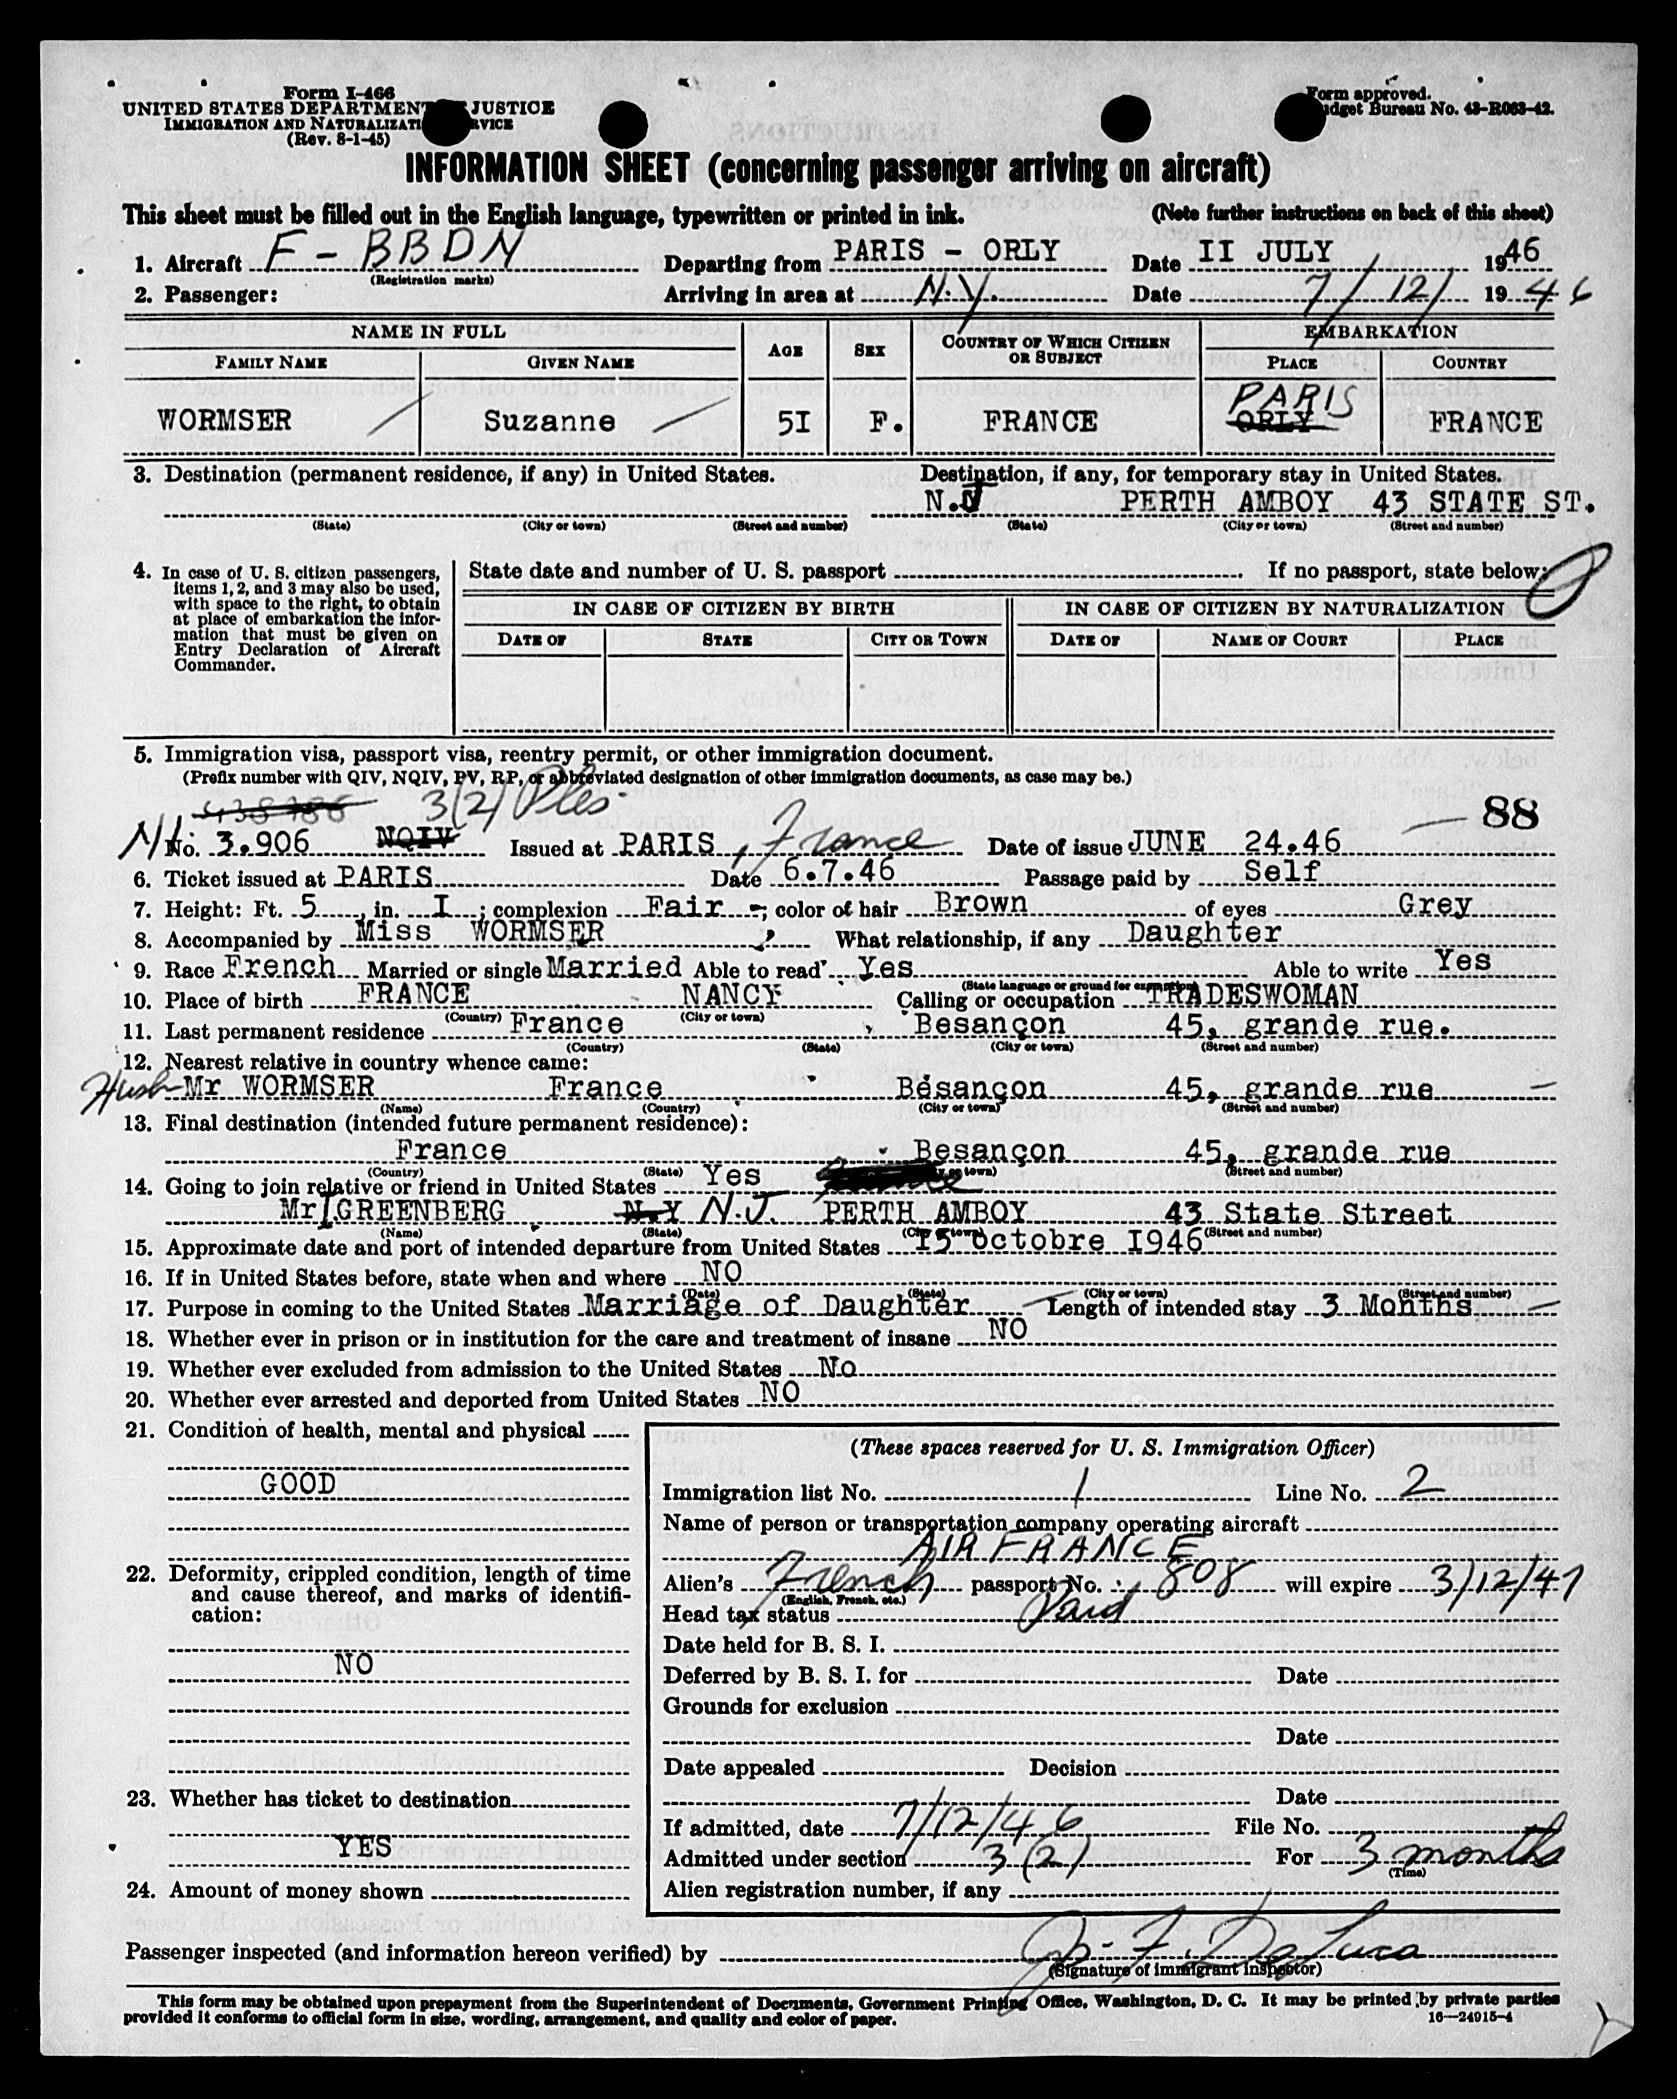 Form I-466
UNITED STATES DEPARTMENT JUSTICE
IMMIGRATION AND NATURALIZATI RVICE
(Rev. 8-1-45)
Form approved.
udget Bureau No. 43-R083-42.
INFORMATION SHEET (concerning passenger arriving on aircraft)
This sheet must be filled out in the English language, typewritten or printed in ink. (Note further instructions on back of this sheet)
1. Aircraft F-BBDN Departing from PARIS - ORLY Date II JULY 1946
(Registration marks)
2. Passenger: Arriving in area at N.Y. Date 7/12/ 1946
NAME IN FULL AGE SEX COUNTRY OF WHICH CITIZEN OR SUBJECT EMBARKATION
FAMILY NAME GIVEN NAME PLACE COUNTRY
PARIS
WORMSER Suzanne 5I F. FRANCE ORLY FRANCE
3. Destination (permanent residence, if any) in United States. Destination, if any, for temporary stay in United States.
N.J PERTH AMBOY 43 STATE ST.
(State) (City or town) (Street and number) (State) (City or town) (Street and number)
4. In case of U. S. citizen passengers, items 1, 2, and 3 may also be used, with space to the right, to obtain at place of embarkation the information that must be given on Entry Declaration of Aircraft Commander.
State date and number of U. S. passport . If no passport, state below:
IN CASE OF CITIZEN BY BIRTH IN CASE OF CITIZEN BY NATURALIZATION
DATE OF STATE CITY OR TOWN DATE OF NAME OF COURT PLACE
5. Immigration visa, passport visa, reentry permit, or other immigration document.
(Prefix number with QIV, NQIV, PV, RP, or abbreviated designation of other immigration documents, as case may be.)
3(2) 88
No. 3.906 NQIV Issued at PARIS, France Date of issue JUNE 24.46
6. Ticket issued at PARIS Date 6.7.46 Passage paid by Self
7. Height: Ft. 5, in. I; complexion Fair; color of hair Brown of eyes Grey
8. Accompanied by Miss WORMSER What relationship, if any Daughter
9. Race French Married or single Married Able to read Yes Able to write Yes
(State language or ground for exemption)
10. Place of birth FRANCE NANCY Calling or occupation TRADESWOMAN
(Country) (City or town)
11. Last permanent residence France Besançon 45, grande rue.
(Country) (State) (City or town) (Street and number)
12. Nearest relative in country whence came:
Husb Mr WORMSER France Besançon 45, grande rue
(Name) (Country) (City or town) (Street and number)
13. Final destination (intended future permanent residence):
France Besançon 45, grande rue
(Country) (State) (City or town) (Street and number)
14. Going to join relative or friend in United States Yes
Mr I. GREENBERG N.Y N.J. PERTH AMBOY 43 State Street
(Name) (State) (City or town) (Street and number)
15. Approximate date and port of intended departure from United States 15 octobre I946
16. If in United States before, state when and where NO
(Date) (State) (City or town) (Street and number)
17. Purpose in coming to the United States Marriage of Daughter Length of intended stay 3 Months
18. Whether ever in prison or in institution for the care and treatment of insane NO
19. Whether ever excluded from admission to the United States No
20. Whether ever arrested and deported from United States NO
21. Condition of health, mental and physical
GOOD
22. Deformity, crippled condition, length of time and cause thereof, and marks of identification:
NO
23. Whether has ticket to destination
YES
24. Amount of money shown
(These spaces reserved for U. S. Immigration Officer)
Immigration list No. 1 Line No. 2
Name of person or transportation company operating aircraft
AIR FRANCE
Alien's French passport No. 808 will expire 3/12/47
(English, French, etc.)
Head tax status Paid
Date held for B. S. I.
Deferred by B. S. I. for Date
Grounds for exclusion
Date
Date appealed Decision
Date
If admitted, date 7/12/46 File No.
Admitted under section 3(2) For 3 months
(Time)
Alien registration number, if any
Passenger inspected (and information hereon verified) by J. F. DeLuca
(Signature of immigrant inspector)
This form may be obtained upon prepayment from the Superintendent of Documents, Government Printing Office, Washington, D. C. It may be printed by private parties
provided it conforms to official form in size, wording, arrangement, and quality and color of paper.
16—24915-4